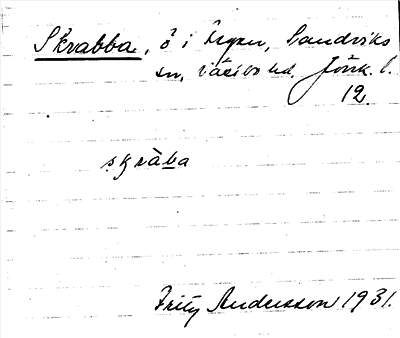 Skrabba, ö i Fegen, Sandviks
sn, Västbo hd. Jönk. l.
12.
skràba
Fritz Andersson 1931.